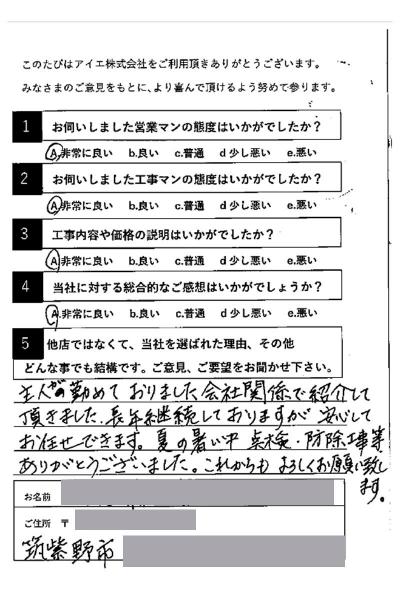 このたびはアイエ株式会社をご利用頂きありがとうございます。
みなさまのご意見をもとに、より喜んで頂けるよう努めて参ります。
1 お伺いしました営業マンの態度はいかがでしたか？
A.非常に良い b.良い c.普通 d 少し悪い e.悪い
2 お伺いしました工事マンの態度はいかがでしたか？
A.非常に良い b.良い c.普通 d 少し悪い e.悪い
3 工事内容や価格の説明はいかがでしたか？
A.非常に良い b.良い c.普通 d 少し悪い e.悪い
4 当社に対する総合的なご感想はいかがでしょうか？
A.非常に良い b.良い c.普通 d 少し悪い e.悪い
5 他店ではなくて、当社を選ばれた理由、その他
どんな事でも結構です。ご意見、ご要望をお聞かせ下さい。
主人が勤めておりました会社関係で紹介して
頂きました、長年継続しておりますが 安心して
お任せできます。夏の暑い中 点検・防除工事等
ありがとうございました。これからも よろしくお願い致し
ます。
お名前
ご住所 〒
筑紫野市